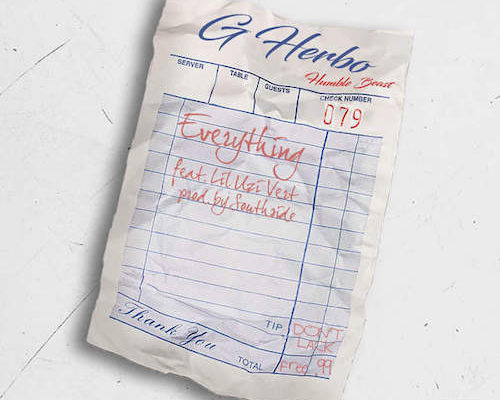 G Herbo
Humble Beast
SERVER TABLE GUESTS CHECK NUMBER
079
Everything
feat. Lil Uzi Vert
prod. by Southside
TIP DON'T
LACK
Thank You
TOTAL Free 99